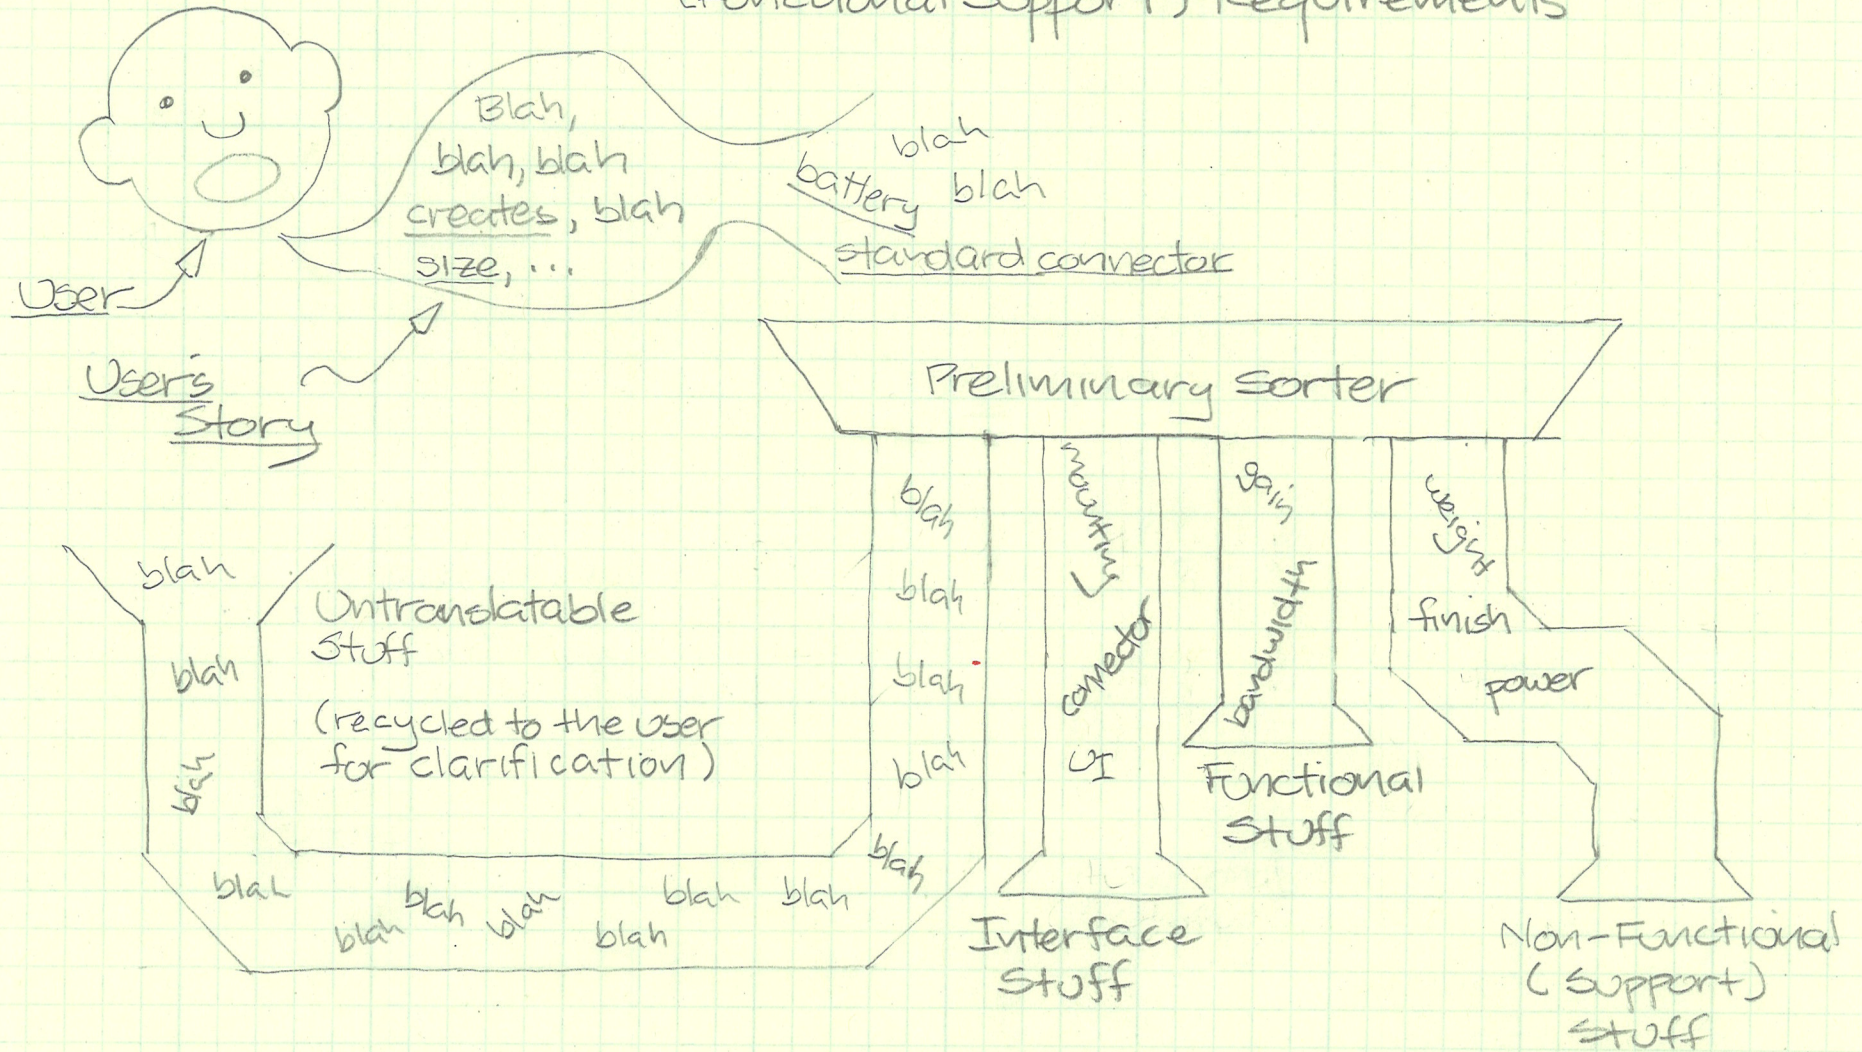 (Functional Support) Requirements
Blah,
blah, blah
creates, blah
size, ...
blah
battery blah
standard connector
User
User's
Story
Preliminary Sorter
blah
blah
blah
blah
blah
mounting
connector
UI
gain
bandwidth
weight
finish
power
blah
blah
blah
Untranslatable
Stuff
(recycled to the user
for clarification)
blah
blah
blah
blah
blah
blah
blah
Interface
Stuff
Functional
Stuff
Non-Functional
(Support)
Stuff